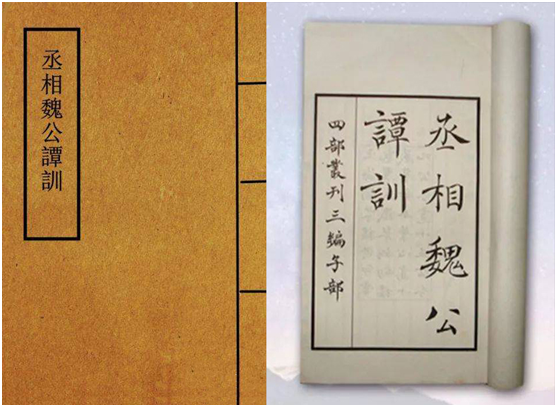 丞相魏公譚訓
丞相魏公
譚訓
四部叢刊三編子部